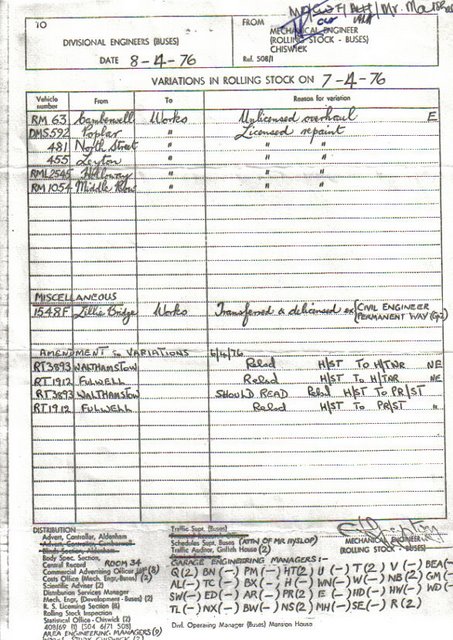 TO
FROM
MECHANICAL ENGINEER
(ROLLING STOCK - BUSES)
CHISWICK
DIVISIONAL ENGINEERS (BUSES)
DATE 8-4-76
Ref. 508/1
VARIATIONS IN ROLLING STOCK ON 7-4-76
Vehicle number From To Reason for variation
RM 63 Camberwell Works Unlicensed overhaul E
DMS592 Poplar " Licensed repaint
481 North Street " " "
455 Leyton " " "
RML2545 Holloway " " "
RM 1054 Middle Row " " "
MISCELLANEOUS
1548F Lillie Bridge Works Transferred & delicensed ex (CIVIL ENGINEER
PERMANENT WAY (Eq2)
AMENDMENT to VARIATIONS 6/4/76
RT3893 WALTHAMSTOW Relsd H/ST TO H/TNR NE
RT1912 FULWELL Relsd H/ST TO H/TNR NE
RT3893 WALTHAMSTOW SHOULD READ Relsd H/ST TO PR/ST
RT1912 FULWELL Relsd H/ST TO PR/ST "
DISTRIBUTION
Advert. Controller, Aldenham
Advert. Controller Camberwell
Blinds Section, Aldenham
Body Spec. Section,
Central Record ROOM 34
Commercial Advertising Officer (3)
Costs Office (Mech. Engr.-Buses) (2)
Scientific Adviser (2)
Distribution Services Manager
Mech. Engr. (Development - Buses) (2)
R. S. Licensing Section (6)
Rolling Stock Inspection
Statistical Office - Chiswick (2)
408/169 B) (504 6/71 508)
AREA ENGINEERING MANAGERS (9)
Traffic Supt. (Buses)
Schedules Supt. Buses (ATTN OF MR HYSLOP)
Traffic Auditor, Griffith House (2)
MECHANICAL ENGINEER
(ROLLING STOCK - BUSES)
GARAGE ENGINEERING MANAGERS :-
Q(2) BN(-) PM(-) HT(2) U(-) T(2) V(-) BEA(-
AL(-) TC(-) BX(-) H(-) WN(-) W(-) NB(2) GM(-
SW(-) ED(-) AR(-) PR(2) E(-) HD(-) HW(-) WD(-
TL(-) NX(-) BW(-) NS(2) MH(-) SE(-) R(2)
Divl. Operating Manager (Buses) Mansion House